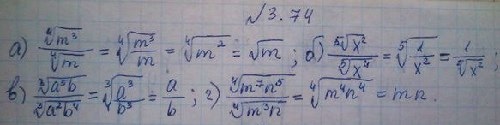 √3.74
а) ⁴√m³ / ⁴√m = ⁴√(m³/m) = ⁴√m² = √m ; б) ⁵√x² / ⁵√x⁴ = ⁵√(1/x²) = 1/⁵√x² ;
в) ³√a⁵b / ³√a²b⁴ = ³√(a³/b³) = a/b ; г) ⁴√m⁷n⁵ / ⁴√m³n = ⁴√m⁴n⁴ = mn.